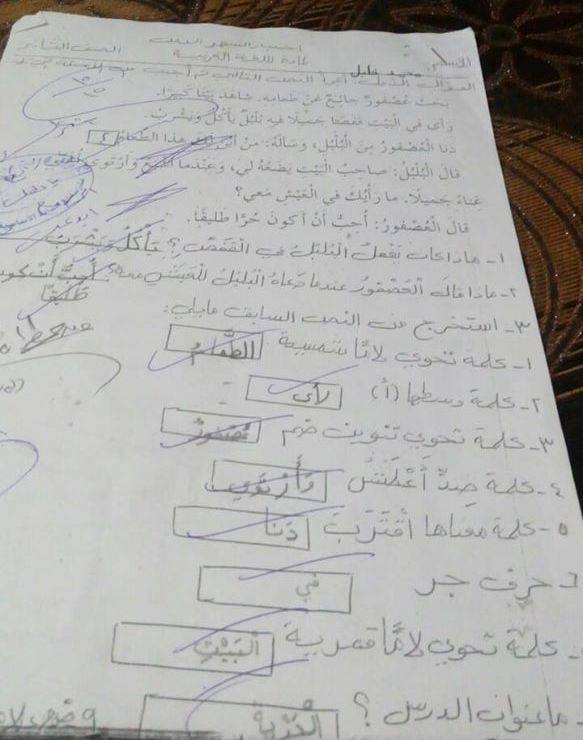 اختبار الشهر الثالث
الاسم: محمد خليل لمادة اللغة العربية الصف الثاني
السؤال الأول: اقرأ النص التالي ثم أجب عن الأسئلة
بحث عُصْفورٌ جائِعٌ عَنْ طَعامِهِ. شاهَدَ بَيْتًا كَبيرًا.
رَأى في الْبَيْتِ قَفَصًا جَميلًا فيهِ بُلْبُلٌ يَأْكُلُ وَيَشْرَبُ.
دَنا الْعُصْفورُ مِنَ الْبُلْبُلِ، وَسَأَلَهُ: مِنْ أَيْنَ لَكَ هذا الطَّعامُ؟
قالَ الْبُلْبُلُ: صاحِبُ الْبَيْتِ يَضَعُهُ لي، وَعِنْدَما
غِناءً جَميلًا. ما رَأْيُكَ في الْعَيْشِ مَعي؟
قالَ الْعُصْفورُ: أُحِبُّ أَنْ أَكونَ حُرًّا طَليقًا.
١- ماذا كان يَفْعلُ الْبُلبُلُ في الْقَفَصِ؟ يَأْكُلُ وَيَشْرَبُ
٢- ماذا قالَ الْعُصْفورُ عندما دَعاهُ الْبُلبُلُ لِلْعَيْشِ معه؟ أُحِبُّ أَنْ أَكون
طَليقًا
٣- استخرج من النص السابق مايلي:
١- كلمة تحوي لامًا شمسية الطَّعامُ
٢- كلمة وسطها (أ) رأى
٣- كلمة تحوي تنوين ضم عُصْفورٌ
٤- كلمة ضِدّ أَعْطَشُ وَأَرْتَوي
٥- كلمة معناها اقْتَرَبَ دَنا
٦- حرف جر في
كلمة تحوي لامًا قمرية الْبَيْتِ
- ما عنوان الدرس؟ الْحُرِّيَّة